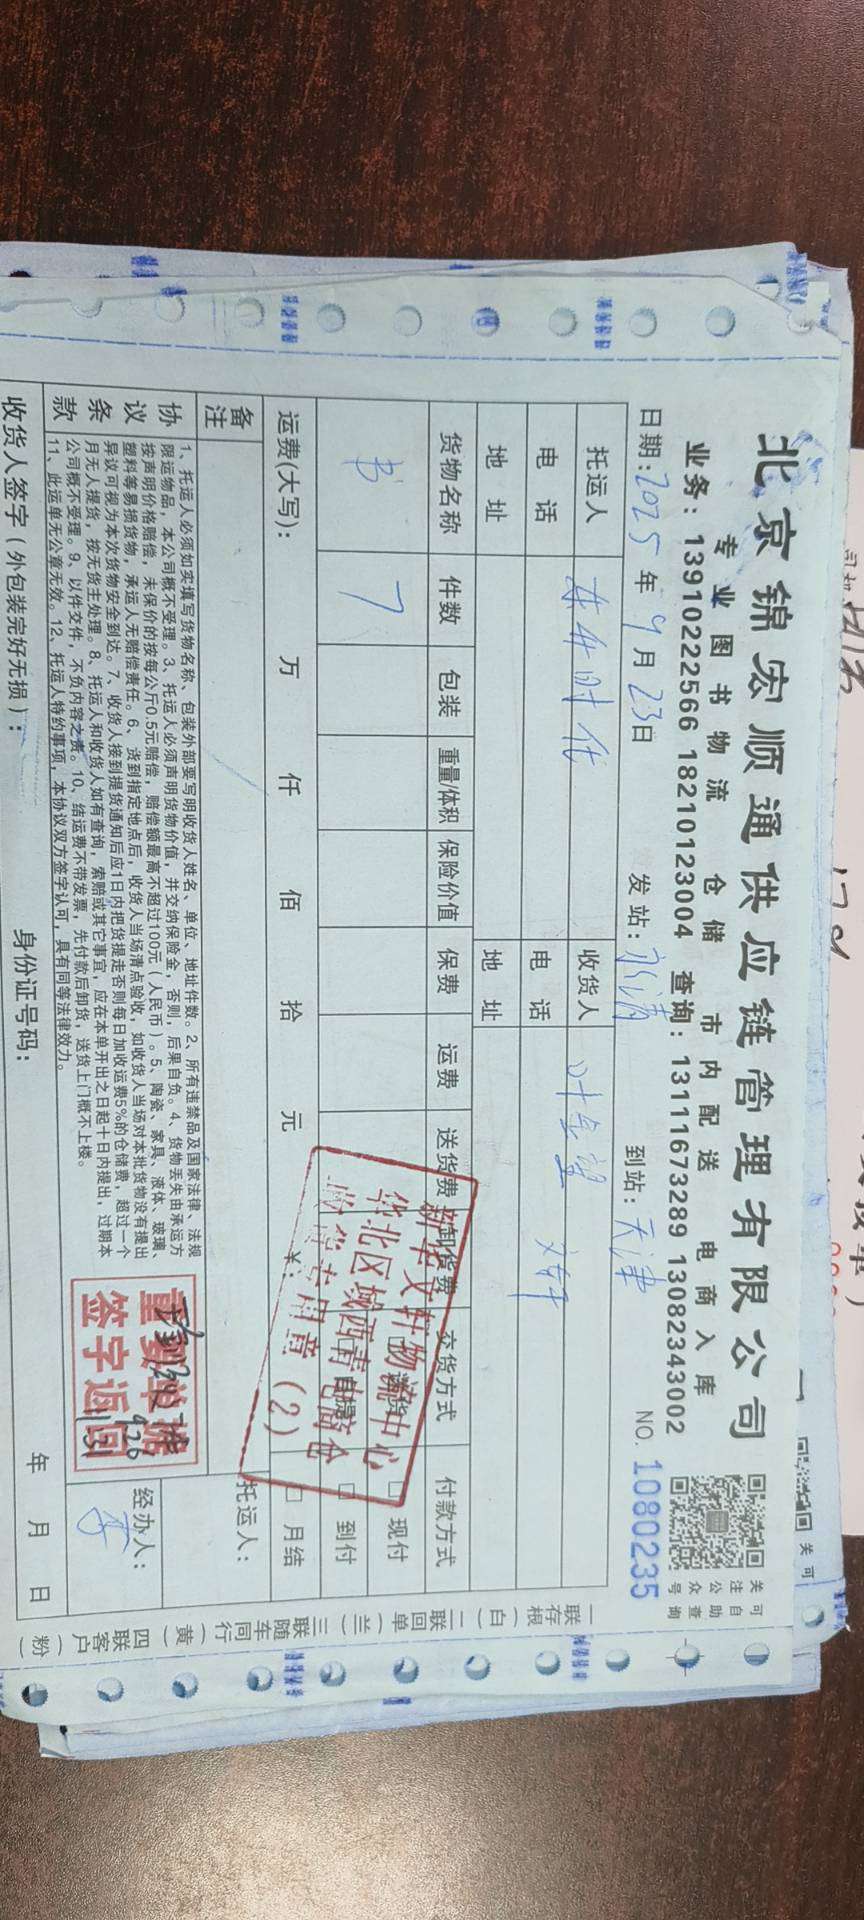 北京锦宏顺通供应链管理有限公司
专业图书物流 仓储 市内配送 电商入库
业务：13910222566 18210123004 查询：13111673289 13082343002
关注公众号
可自助查询
日期：2025年9月23日 发站：永清 到站：天津 NO. 1080235
托运人 收货人
电话 电话 文轩
地址 地址
货物名称 件数 包装 重量/体积 保险价值 保费 运费 送货费 卸货费 交货方式 付款方式
书 7 送货 自提 □现付 □到付 □月结
运费(大写)： 万 仟 佰 拾 元 ¥：
新华文轩物流中心
华北区域西青电商仓
收货专用章（2）
备注
托运人：
协议条款
1、托运人必须如实填写货物名称、包装外部要写明收货人姓名、单位、地址件数。2、所有违禁品及国家法律、法规
限运物品，本公司概不受理。3、托运人必须声明货物价值，并交纳保险金，否则，后果自负。4、货物丢失由承运方
按声明价格赔偿，未保价的按每公斤0.5元赔偿，赔偿额最高不超过100元（人民币）。5、陶瓷、家具、液体、玻璃、
塑料等易损货物，承运人无赔偿责任。6、货到指定地点后，收货人当场清点验收，如收货人当场对本批货物没有提出
异议可视为本次货物安全到达。7、收货人接到提货通知后应1日内把货提走否则每日加收运费5%的仓储费，超过一个
月无人提货，按无货主处理。8、托运人和收货人如有查询，索赔或其它事宜，应在本单开出之日起十日内提出，过期本
公司概不受理。9、以件交件，不负内容之责。10、结运费不带发票，先付款后卸货，送货上门概不上楼。
11、此运单无公章无效。12、托运人特约事项，本协议双方签字认可，具有同等法律效力。
重要单据
签字返回
9.26
经办人：
收货人签字（外包装完好无损）： 身份证号码： 年 月 日
一联存根（白） 二联回单（兰） 三联随车同行（黄） 四联客户（粉）